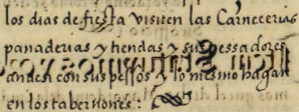 los dias de fiesta visiten las Carnecerias
panaderias y tiendas y sus pessadores
anden con sus pessos y lo mesmo hagan
en los tabernones: